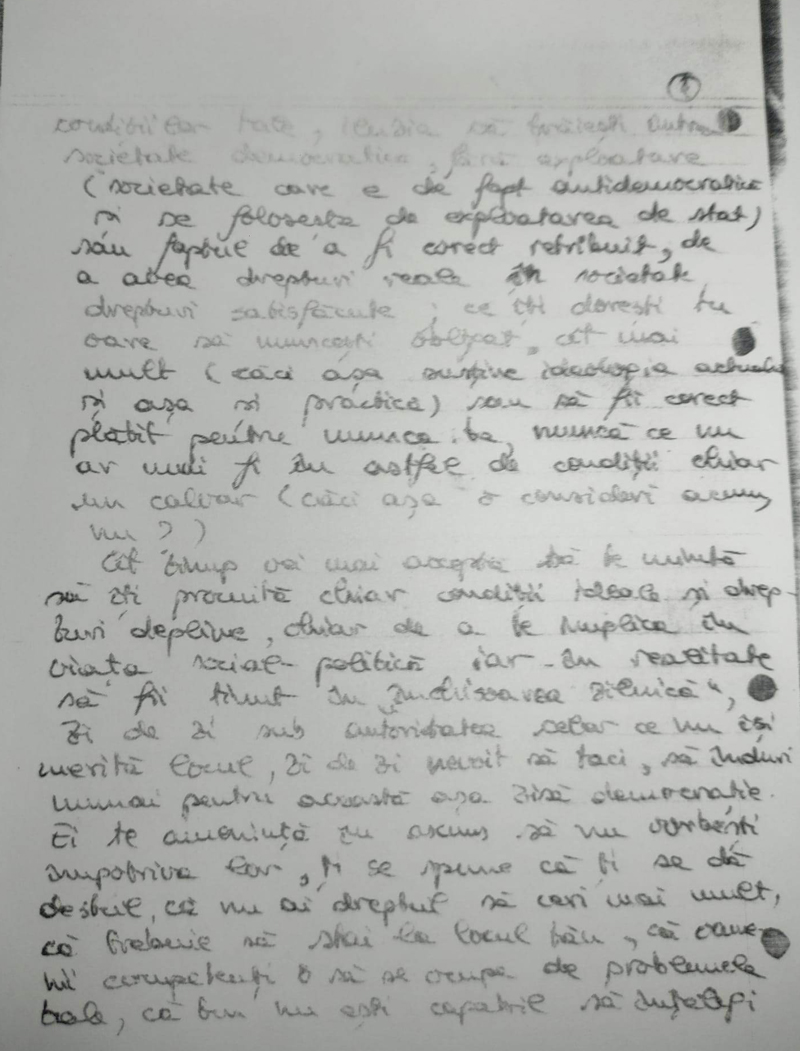 condițiilor tale, iluzia că trăiești într-o
societate democratică, fără exploatare
(societate care e de fapt antidemocratică
și se folosește de exploatarea de stat)
sau faptul de a fi corect retribuit, de
a avea drepturi reale în societate,
drepturi satisfăcute; ce îți dorești tu
oare să muncești obligat, cît mai
mult (căci așa susține ideologia actuală
și așa și practica) sau să fii corect
plătit pentru munca ta, muncă ce nu
ar mai fi în astfel de condiții chiar
un calvar (căci așa o consideri acum,
nu?)
Cît timp vei mai accepta să te mintă
să îți promită chiar condiții ideale și drep-
turi depline, chiar de a te implica în
viața social-politică iar în realitate
să fii ținut în „îndissoarea zilnică",
zi de zi sub autoritatea celor ce nu își
merită locul, zi de zi nevoit să taci, să înduri
numai pentru această așa zisă democrație.
Ei te amenință în ascuns să nu vorbești
împotriva lor, ți se spune că ți se dă
destul, că nu ai dreptul să ceri mai mult,
că trebuie să stai la locul tău, că oame-
nii competenți o să se ocupe de problemele
tale, că tu nu ești capabil să înțelegi